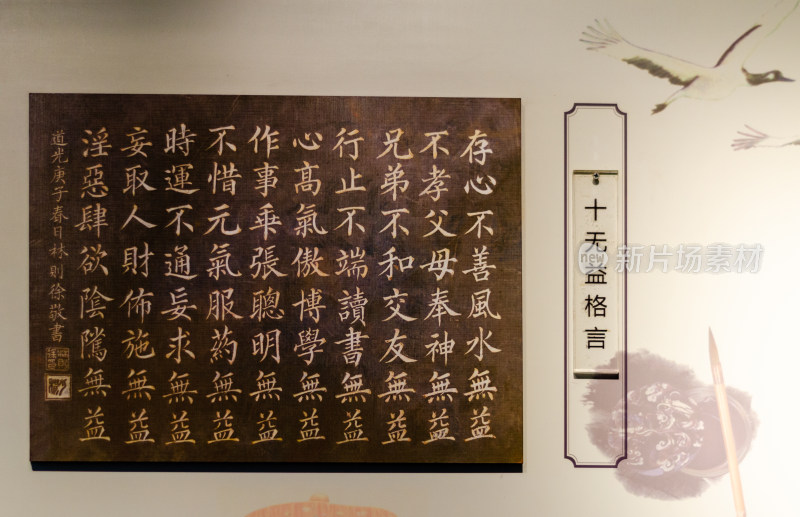 存心不善風水無益
不孝父母奉神無益
兄弟不和交友無益
行止不端讀書無益
心髙氣傲博學無益
作事乖張聰明無益
不惜元氣服葯無益
時運不通妄求無益
妄取人財佈施無益
淫惡肆欲陰隲無益
道光庚子春日林則徐敬書
十无益格言
new
新片场素材